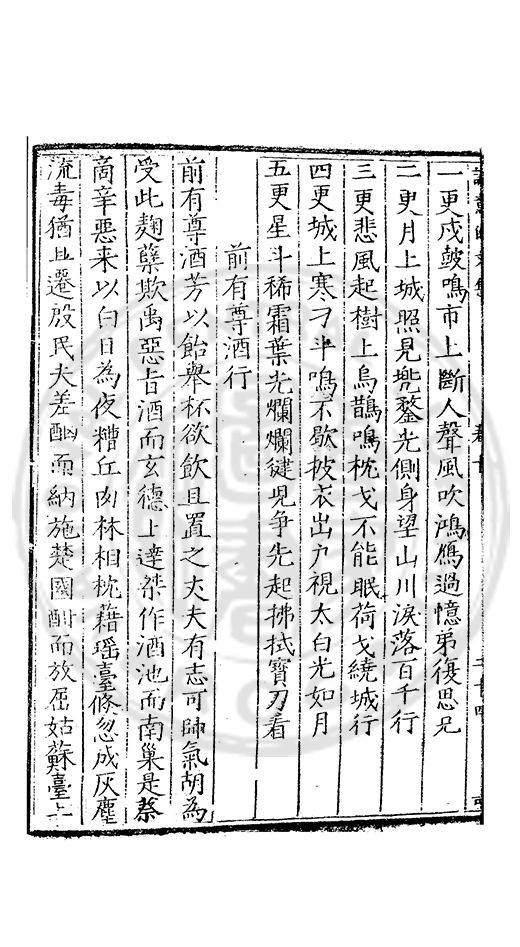 一更戍皷鳴市上斷人聲風吹鴻鴈過憶弟復思兄
二更月上城照見兠鍪光側身望山川淚落百千行
三更悲風起樹上烏鵲鳴枕戈不能眠荷戈繞城行
四更城上寒刁斗鳴不歇披衣出户視太白光如月
五更星斗稀霜葉光爛爛徤児争先起拂拭寶刀看
前有尊酒行
前有尊酒芳以飴舉杯欲飲且置之丈夫有志可帥氣胡為
受此麹蘖欺禹惡旨酒而玄德上達桀作酒池而南巢是蔡
啇辛惡来以白日為夜糟丘肉林相枕藉瑶臺倐忽成灰塵
流毒猶且遷殷民夫差酗而納施楚國酣而放屈姑蘇臺上